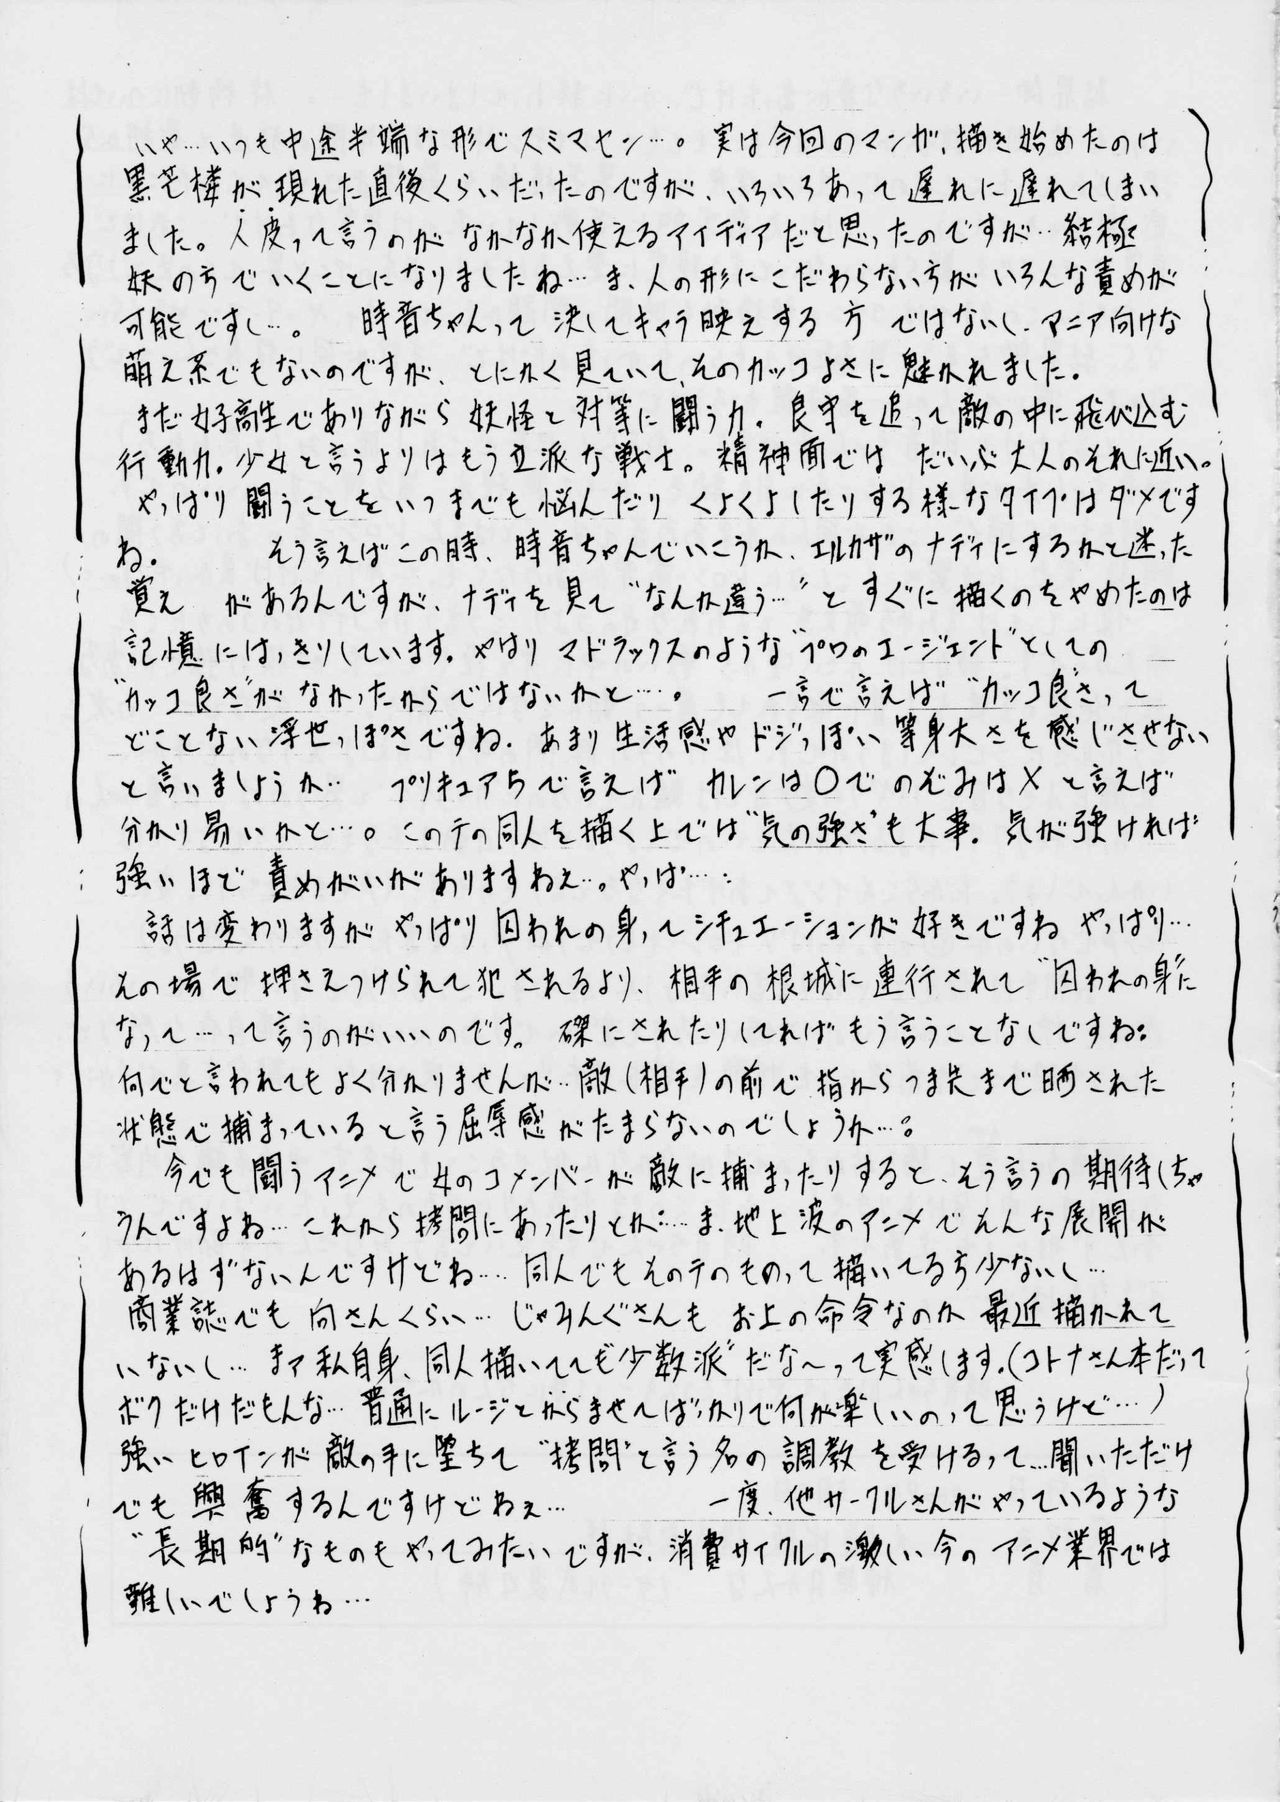 いや…いつも中途半端な形でスミマセン…。実は今回のマンガ、描き始めたのは
黒芒楼が現れた直後くらいだったのですが、いろいろあって遅れに遅れてしまい
ました。人皮って言うのがなかなか使えるアイディアだと思ったのですが…結極
妖の方でいくことになりましたね…ま、人の形にこだわらない方がいろんな責めが
可能ですし…。 時音ちゃんって決してキャラ映えする方ではないし、マニア向けな
萌え系でもないのですが、とにかく見ていて、そのカッコよさに魅かれました。
まだ女子高生でありながら妖怪と対等に闘う力。良守を追って敵の中に飛び込む
行動力。少女と言うよりはもう立派な戦士。精神面ではだいぶ大人のそれに近い。
やっぱり闘うことをいつまでも悩んだりくよくよしたりする様なタイプはダメです
ね。 そう言えばこの時、時音ちゃんでいこうか、エルカザのナディにするかと迷った
覚えがあるんですが、ナディを見て“なんか違う…”とすぐに描くのをやめたのは
記憶にはっきりしています。やはりマドラックスのような“プロのエージェント”としての
“カッコ良さ”がなかったからではないかと…。 一言で言えば“カッコ良さ”って
どことない浮世っぽさですね。あまり生活感やドジっぽい等身大さを感じさせない
と言いましょうか… プリキュア5で言えばカレンは○でのぞみは×と言えば
分かり易いかと…。このテの同人を描く上では“気の強さ”も大事。気が強ければ
強いほど責めがいがありますねぇ…。やっぱ…
話は変わりますがやっぱり囚われの身ってシチュエーションが好きですねやっぱり…
その場で押さえつけられて犯されるより、相手の根城に連行されて“囚われの身”に
なって…って言うのがいいのです。磔にされたりしてればもう言うことなしですね。
何でと言われてもよく分かりませんが…敵(相手)の前で指からつま先まで晒された
状態で捕まっていると言う屈辱感がたまらないのでしょうか…。
今でも闘うアニメで女のコメンバーが敵に捕まったりすると、そう言うの期待しちゃ
うんですよね…これから拷問にあったりとか…ま、地上波のアニメでそんな展開が
あるはずないんですけどね…同人でもそのテのものって描いてる方少ないし…
商業誌でも向さんくらい…じゃみんぐさんもお上の命令なのか最近描かれて
いないし…まァ私自身、同人描いてても“少数派”だな～って実感します。(コトナさん本だって
ボクだけだもんな…普通にルージとからませてばっかりで何が楽しいのって思うけど…)
強いヒロインが敵の手に堕ちて“拷問”と言う名の調教を受けるって…聞いただけ
でも興奮するんですけどねぇ… 一度、他サークルさんがやっているような
“長期的”なものもやってみたいですが、消費サイクルの激しい今のアニメ業界では
難しいでしょうね…